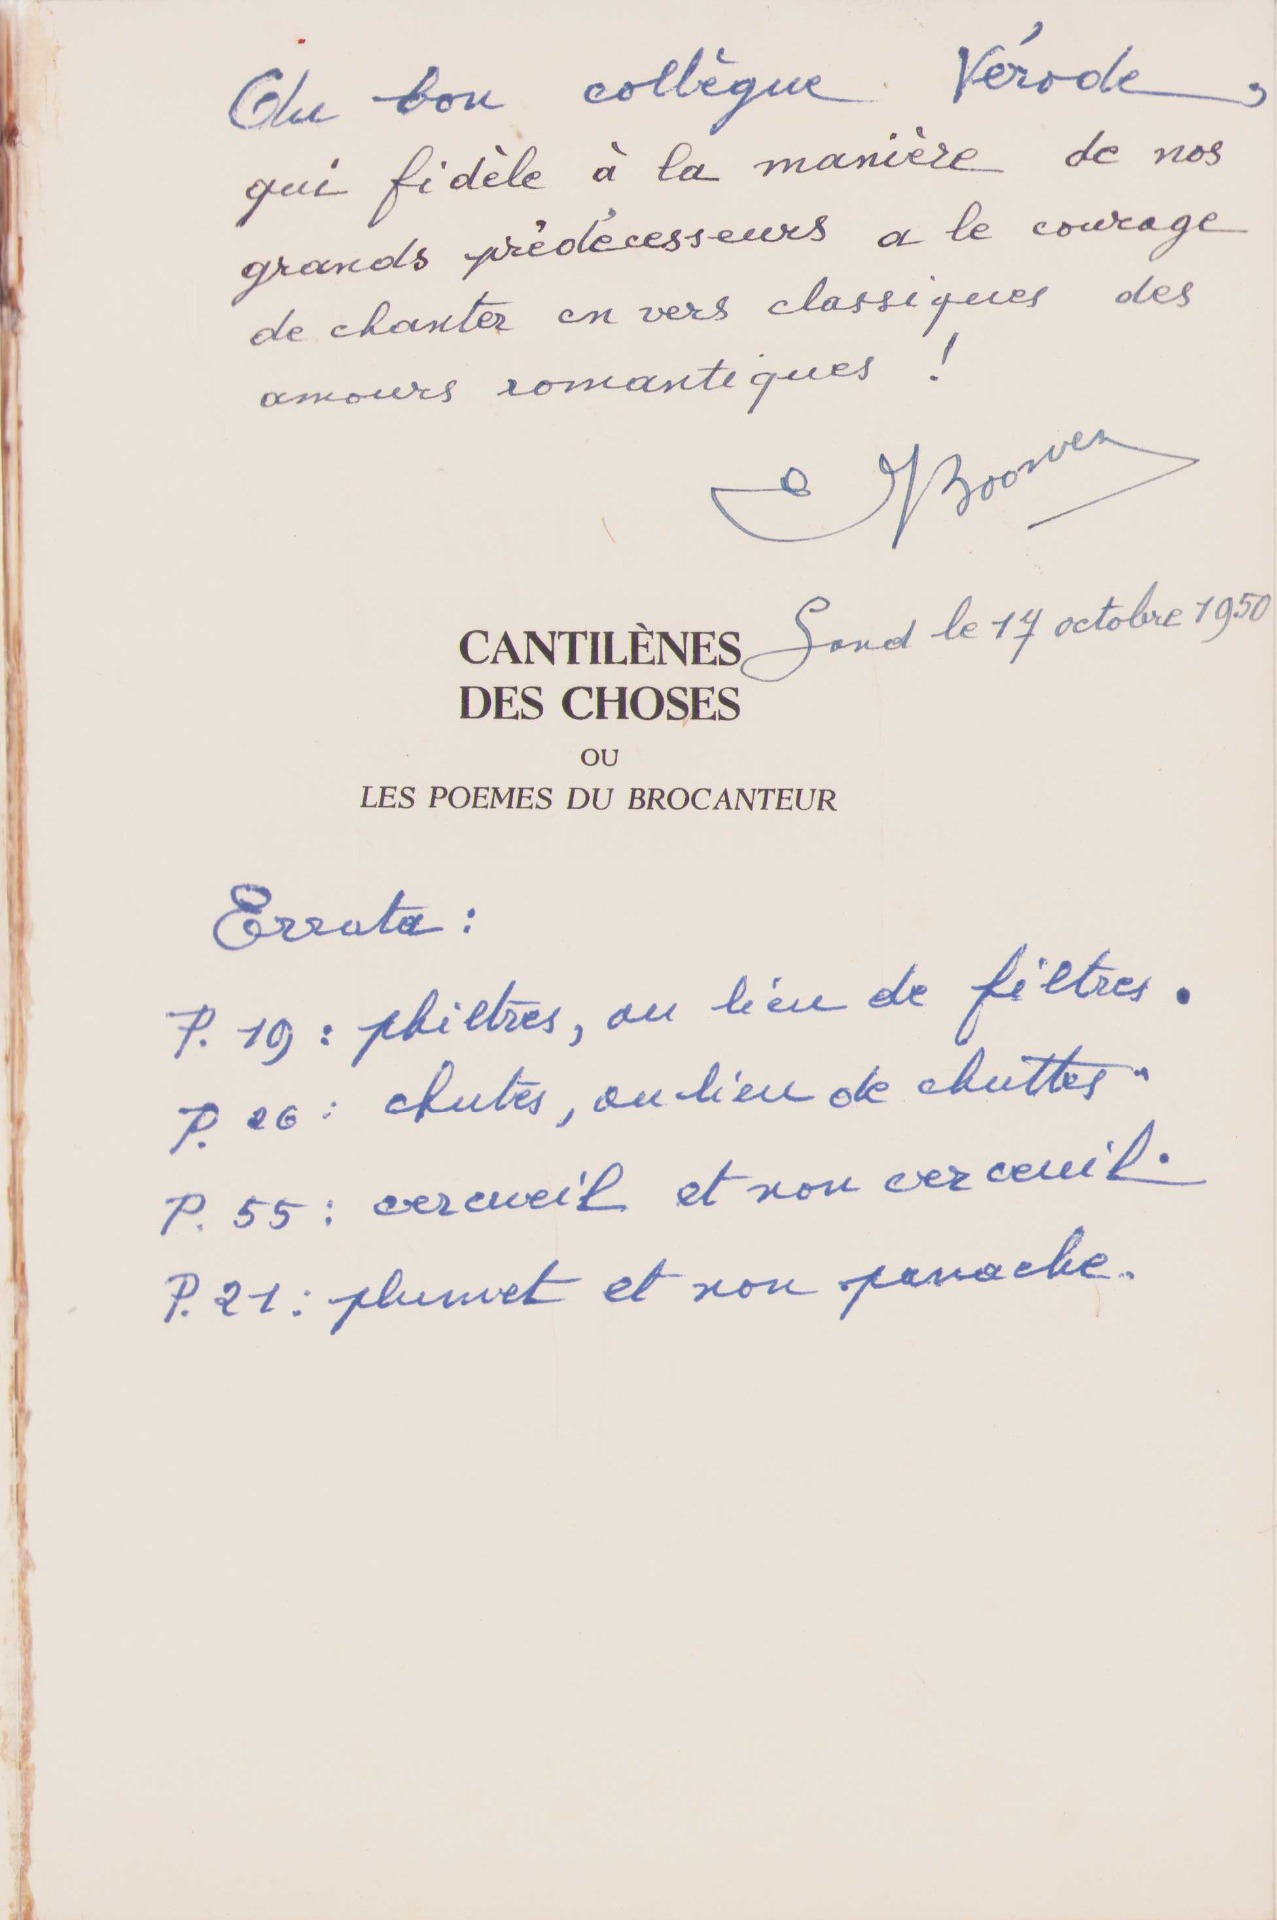 Au bon collègue Vérode,
qui fidèle à la manière de nos
grands prédécesseurs a le courage
de chanter en vers classiques des
amours romantiques !
Gand le 17 octobre 1950
CANTILÈNES
DES CHOSES
OU
LES POEMES DU BROCANTEUR
Errata :
P. 19 : philtres, au lieu de filtres.
P. 26 : chutes, au lieu de chuttes.
P. 55 : cercueil et non cerceuil.
P. 21 : plumet et non panache.